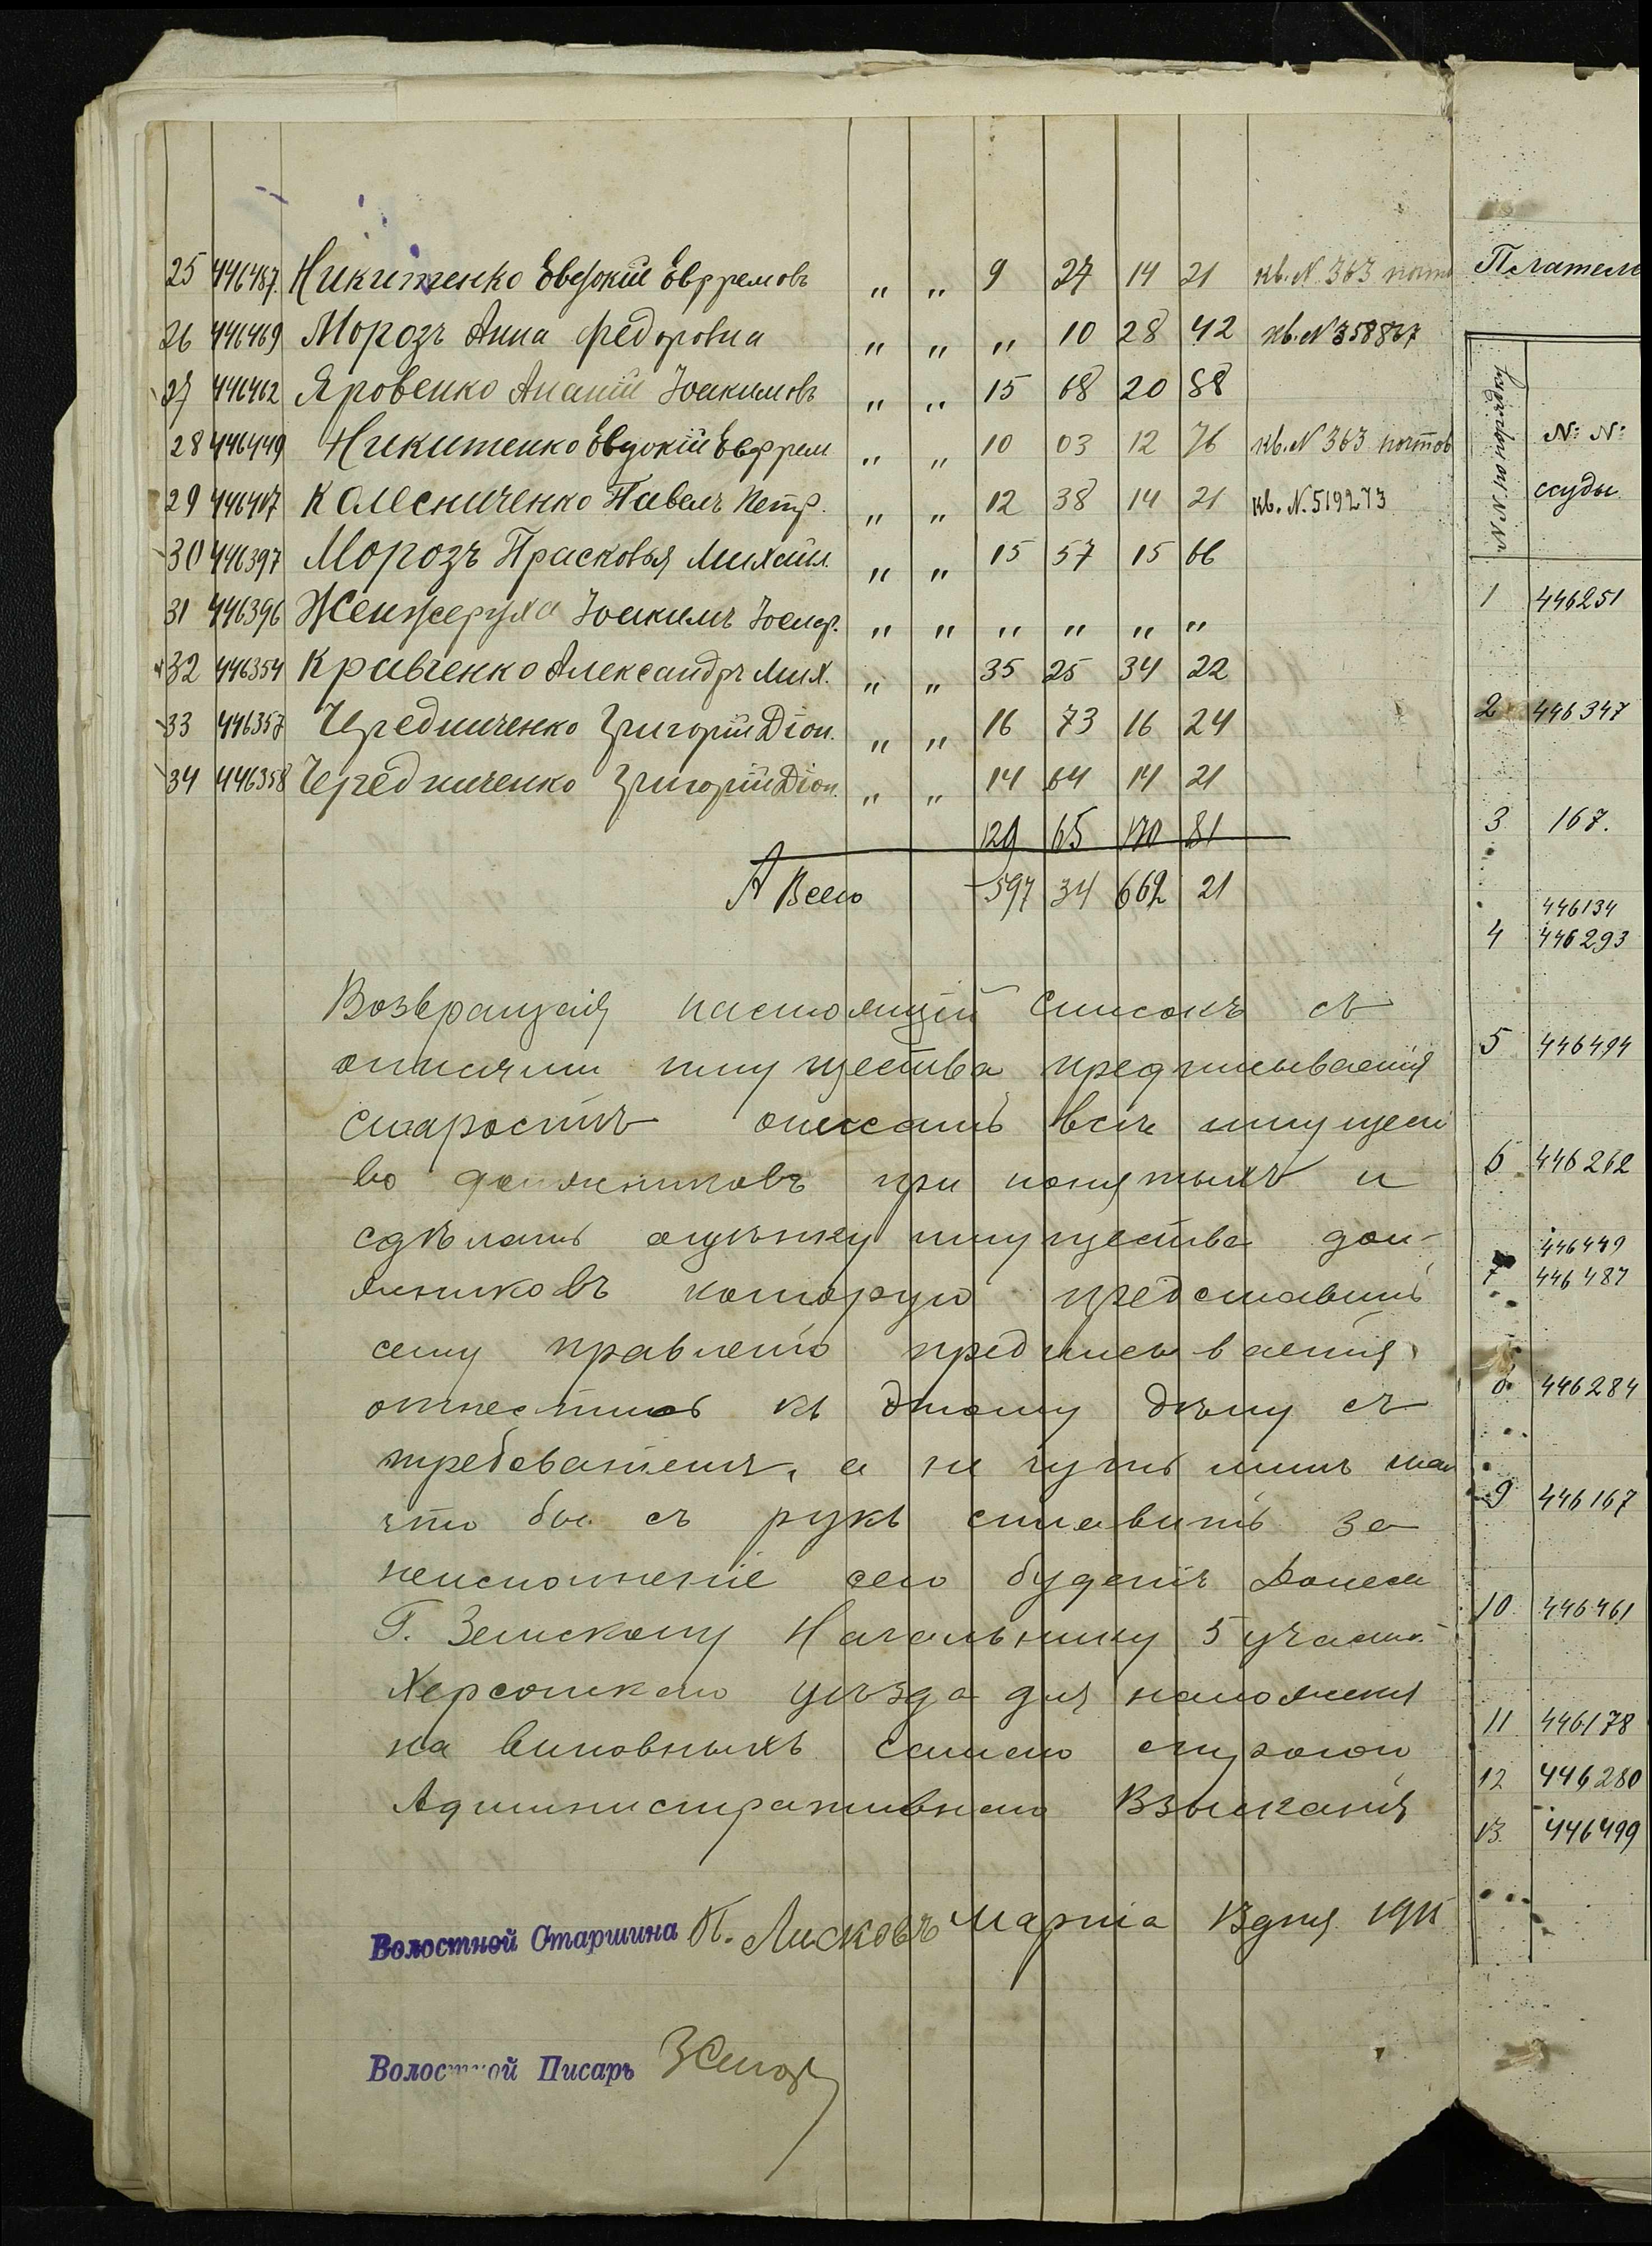 25 446487. Никитенко Евдокій Евфремовъ " " 9 27 14 21 кв. N 363 почт
26 446469 Морозъ Анна Федоровна " " " 10 28 42 кв. N 358867
27 446462 Яровенко Ананій Іоакимовъ " " 15 68 20 88
28 446449 Никитенко Евдокій Евфрем " " 10 03 12 76 кв. N 363 почтов
29 446407 Колесниченко Павелъ Петр. " " 12 38 14 21 кв. N. 519273
30 446397 Морозъ Прасковья Михайл. " " 15 57 15 66
31 446396 Женжеруха Іоакимъ Іосиф. " " " " " "
32 446354 Кравченко Александръ Мих. " " 35 25 34 22
33 446357 Чередниченко Григорій Діон. " " 16 73 16 24
34 446358 Чередниченко Григорій Діон. " " 14 64 14 21
129 65 170 81
А Всего 597 34 662 21
Возвращая настоящій списокъ съ
описями имущества предписывается
старостѣ описать всѣ имущест
во должниковъ при понятыхъ и
сдѣлать оцѣнку имущества дол-
жниковъ которую представить
сему правленію предписывается
отнестись къ этому дѣлу съ
требованіемъ, а не чуть лишь
что бы съ рукъ ставить за
неисполненіе сего будетъ донесен
Г. Земскому Начальнику 5 участ.
Херсонкаго уѣзда для наложенія
на виновныхъ самого строгого
Административнаго Взысканія
Волостной Старшина П. Лисковъ Марта 13 дня 1911
Волостной Писарь
Плателе
№№ по порядку
N: N:
ссуды
1 446251
2 446347
3 167.
446134
4 446293
5 446494
6 446262
446449
7 446487
8 446284
9 446167
10. 446461
11 446178
12 446280
13. 446499